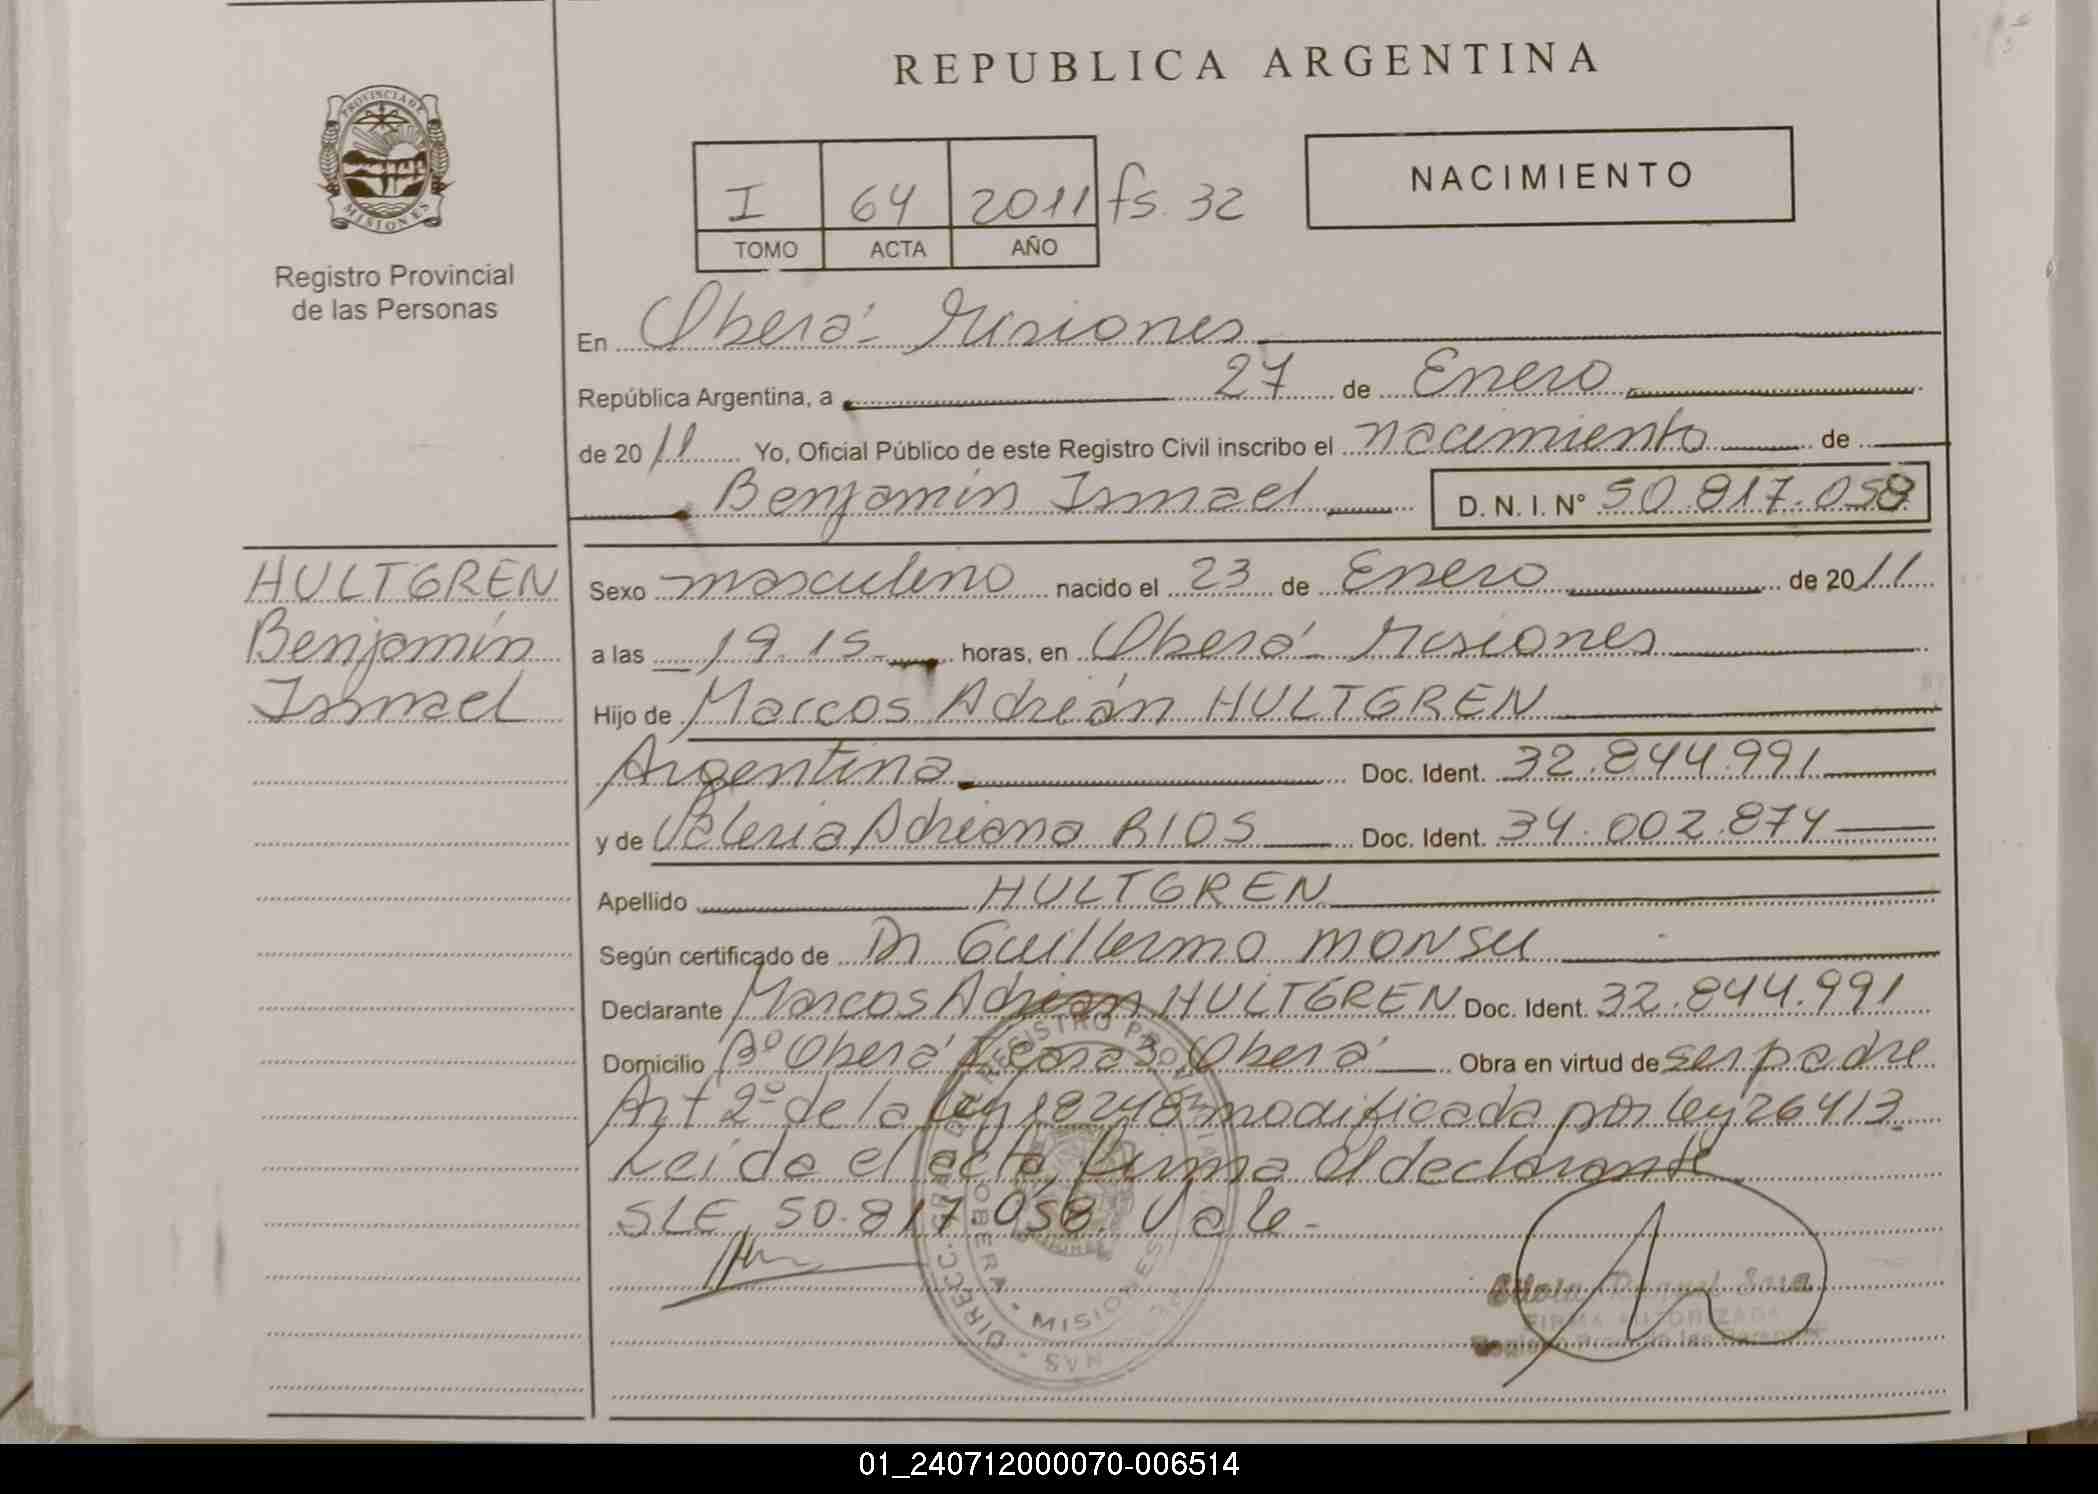 REPUBLICA ARGENTINA
PROVINCIA DE MISIONES
Registro Provincial
de las Personas
I 64 2011 fs. 32
TOMO ACTA AÑO
NACIMIENTO
En Oberá - Misiones
República Argentina, a 27 de Enero
de 2011 Yo, Oficial Público de este Registro Civil inscribo el nacimiento de
Benjamín Ismael D. N. I. N° 50.817.058
HULTGREN
Benjamín
Ismael
Sexo masculino nacido el 23 de Enero de 2011
a las 19.15 horas, en Oberá - Misiones
Hijo de Marcos Adrián HULTGREN
Argentina Doc. Ident. 32.844.991
y de Valeria Adriana RIOS Doc. Ident. 34.002.874
Apellido HULTGREN
Según certificado de Dr Guillermo MONSU
Declarante Marcos Adrián HULTGREN Doc. Ident. 32.844.991
Domicilio Bº Oberá I casa 3 Oberá Obra en virtud de ser padre
Art 2º de la ley 18248 modificada por ley 26413
Leída el acta, firma el declarante
SLE, 50.817.058. Vale-
REGISTRO PROVINCIAL
OBERA - MISIONES
Raquel Sosa
FIRMA AUTORIZADA
01_240712000070-006514